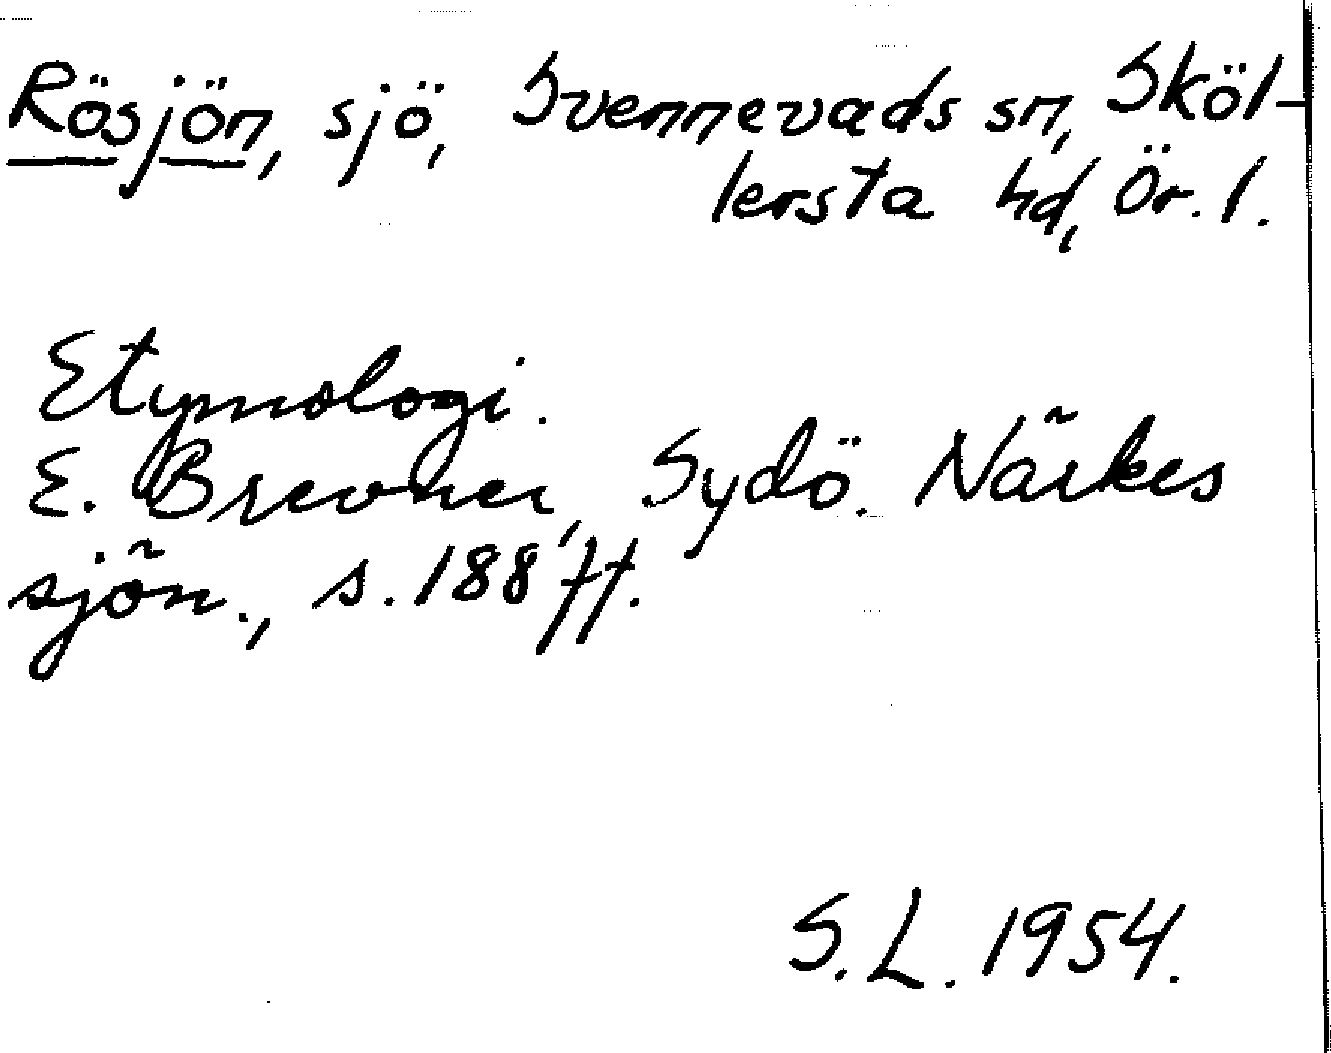 Rösjön, sjö, Svennevads sn, Sköl-
lersta hd, Ör. l.
Etymologi.
E. Brevner, Sydö. Närkes
sjön., s. 188 ff.
S. L. 1954.